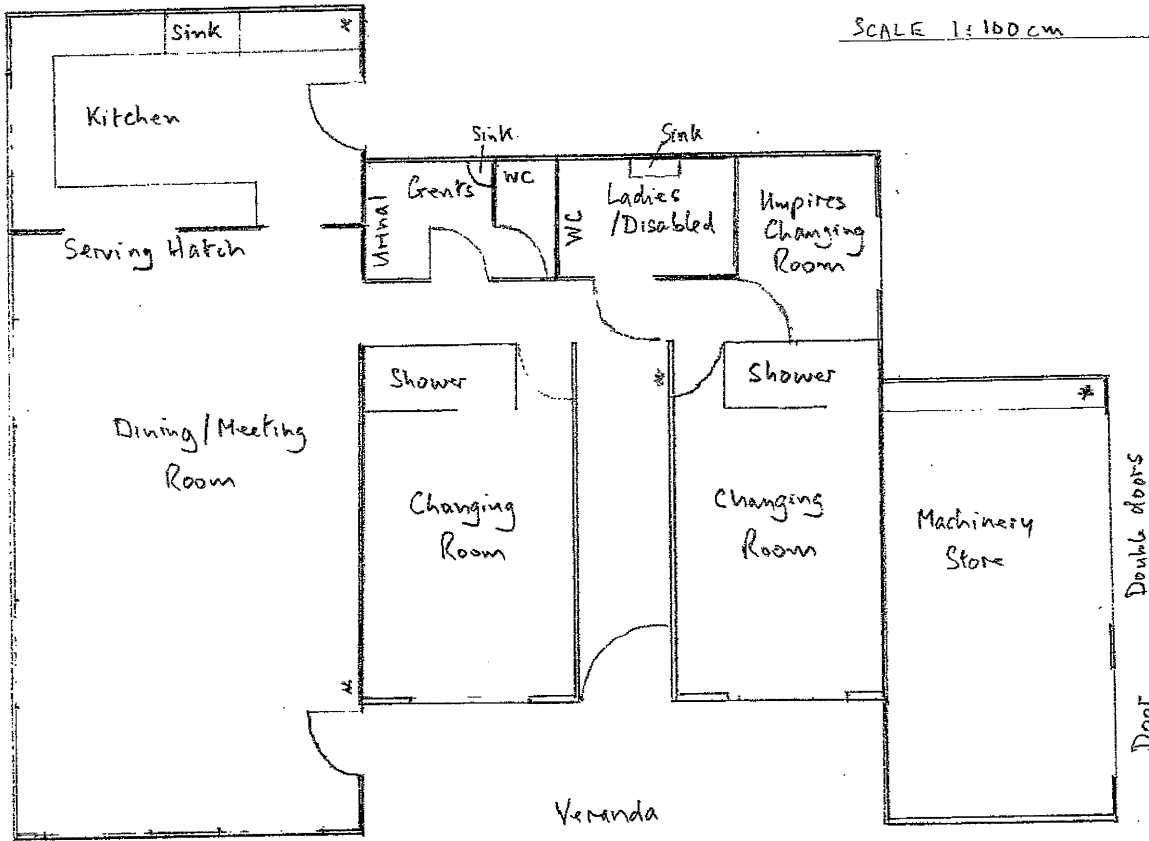 SCALE 1:100cm
Sink
Kitchen
Sink
Sink
Gents
WC
Urinal
WC
Ladies
/Disabled
Umpires
Changing
Room
Serving Hatch
Shower
Shower
Dining/Meeting
Room
Changing
Room
Changing
Room
Machinery
Store
Double doors
Door
Veranda